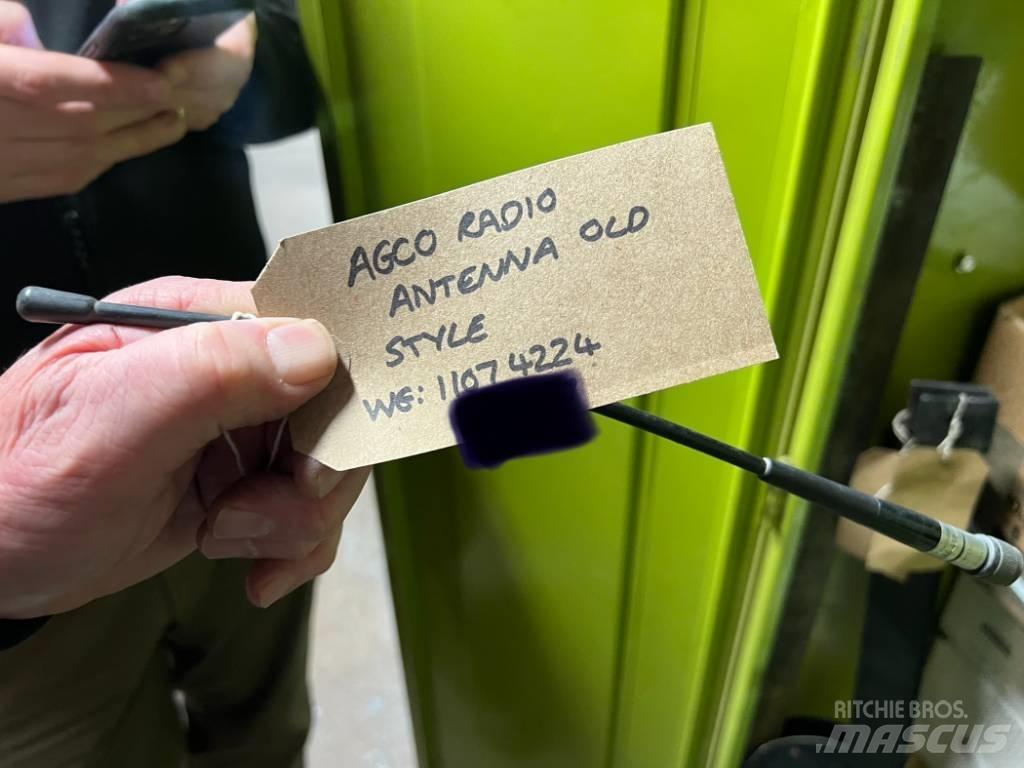 AGCO RADIO
ANTENNA OLD
STYLE
WE: 11074224.
RITCHIE BROS.
MASCUS